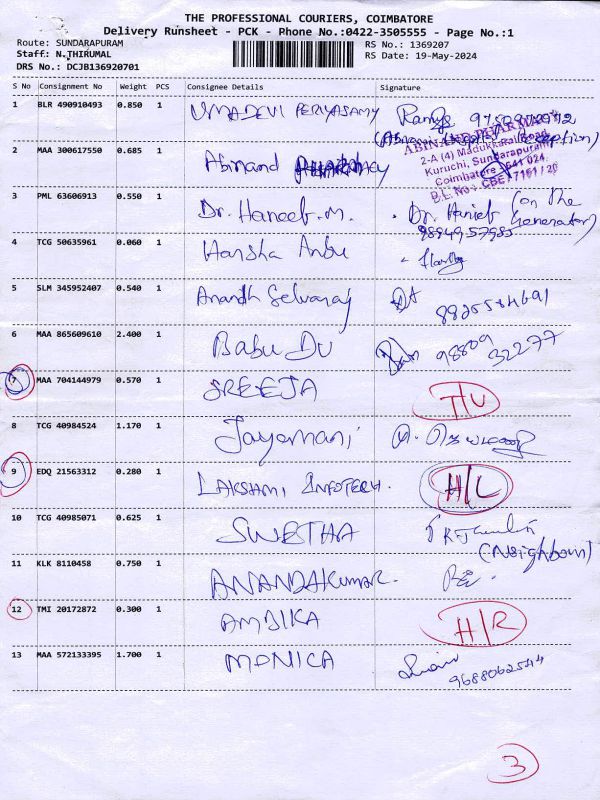 THE PROFESSIONAL COURIERS, COIMBATORE
Delivery Runsheet - PCK - Phone No.:0422-3505555 - Page No.:1
Route: SUNDARAPURAM RS No.: 1369207
Staff: N.THIRUMAL RS Date: 19-May-2024
DRS No.: DCJB136920701
S No Consignment No Weight PCS Consignee Details Signature
1 BLR 490910493 0.850 1 UMADEVI PERIYASAMY
2 MAA 300617550 0.685 1 Abinand
ABINAND PHARMACY
2-A (4) Madukkarai Road
Kuruchi, Sundarapuram
Coimbatore - 641 024.
3 PML 63606913 0.550 1 Dr. Haneeb.M. Dr. Hanieb (on the
Generator)
4 TCG 50635961 0.060 1 Harsha Anbu
5 SLM 345952407 0.540 1 Anandh Selvaraj
6 MAA 865609610 2.400 1 Babu Du 98809
32277
7 MAA 704144979 0.570 1 SREEJA T/U
8 TCG 40984524 1.170 1 Jayamani
9 EDQ 21563312 0.280 1 LAKSHMI INFOTECH. H/L
10 TCG 40985071 0.625 1 SWETHA
(Neighbour)
11 KLK 8110458 0.750 1 ANANDAKUMAR.
12 TMI 20172872 0.300 1 AMBIKA H/R
13 MAA 572133395 1.700 1 MONICA
9688062544
3